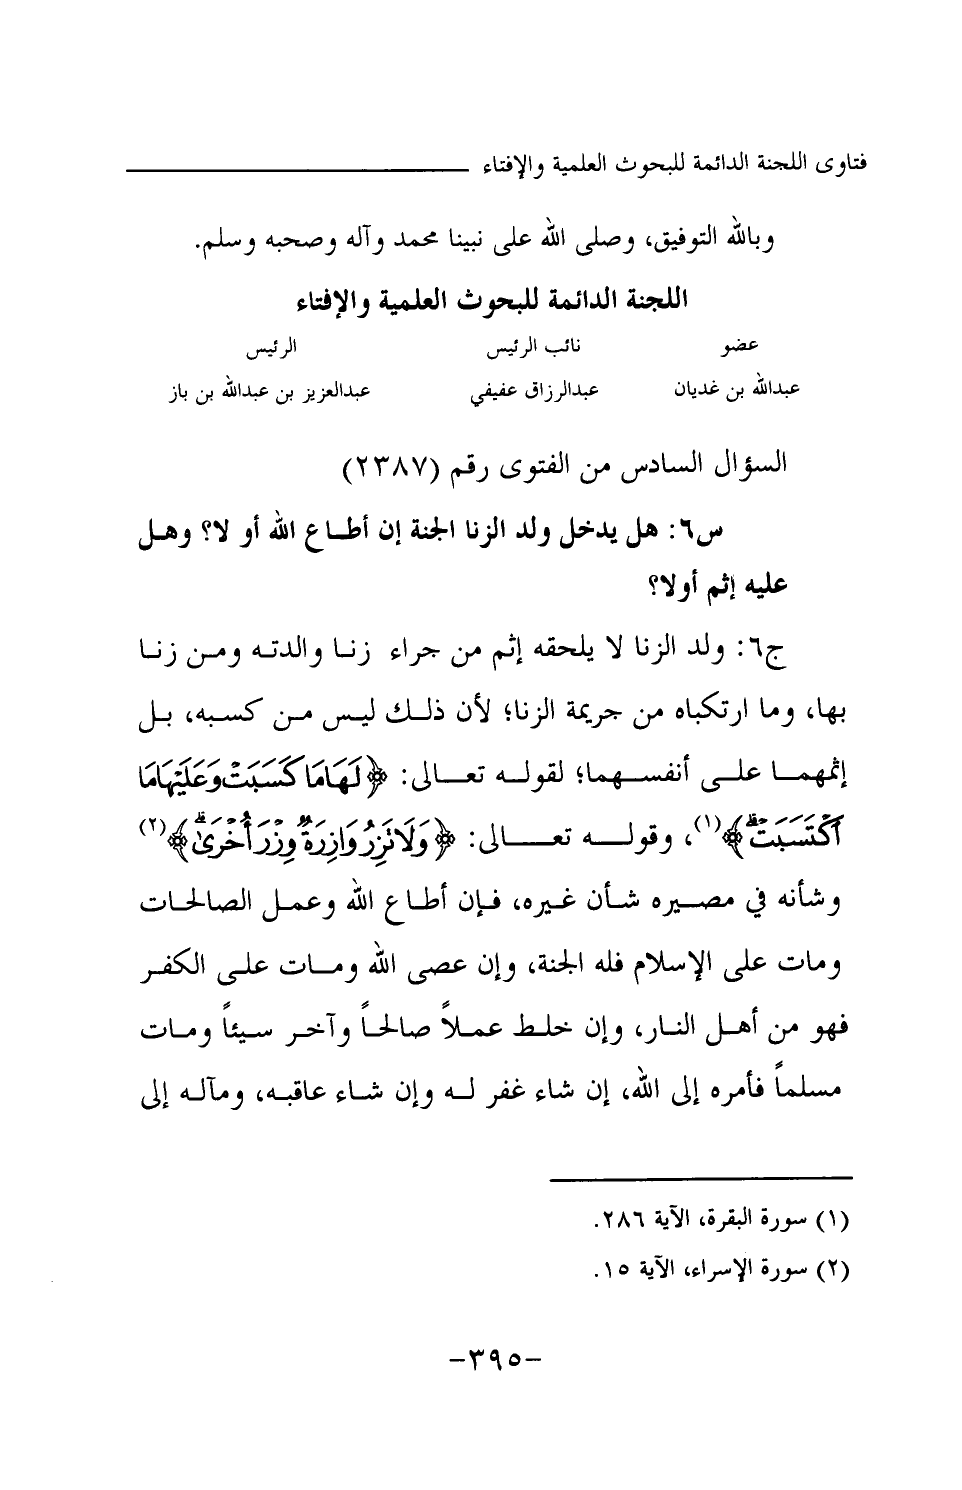 فتاوى اللجنة الدائمة للبحوث العلمية والإفتاء
وبالله التوفيق، وصلى الله على نبينا محمد وآله وصحبه وسلم.
اللجنة الدائمة للبحوث العلمية والإفتاء
عضو نائب الرئيس الرئيس
عبدالله بن غديان عبدالرزاق عفيفي عبدالعزيز بن عبدالله بن باز
السؤال السادس من الفتوى رقم (٢٣٨٧)
س٦: هل يدخل ولد الزنا الجنة إن أطاع الله أو لا؟ وهل
عليه إثم أولا؟
ج٦: ولد الزنا لا يلحقه إثم من جراء زنا والدته ومن زنا
بها، وما ارتكباه من جريمة الزنا؛ لأن ذلك ليس من كسبه، بل
إثمهما على أنفسهما؛ لقوله تعالى: ﴿لَهَا مَا كَسَبَتْ وَعَلَيْهَا مَا
اكْتَسَبَتْ ۗ﴾(١)، وقوله تعالى: ﴿وَلَا تَزِرُ وَازِرَةٌ وِزْرَ أُخْرَىٰ ۗ﴾(٢)
وشأنه في مصيره شأن غيره، فإن أطاع الله وعمل الصالحات
ومات على الإسلام فله الجنة، وإن عصى الله ومات على الكفر
فهو من أهل النار، وإن خلط عملاً صالحاً وآخر سيئاً ومات
مسلماً فأمره إلى الله، إن شاء غفر له وإن شاء عاقبه، ومآله إلى
(١) سورة البقرة، الآية ٢٨٦.
(٢) سورة الإسراء، الآية ١٥.
-٣٩٥-